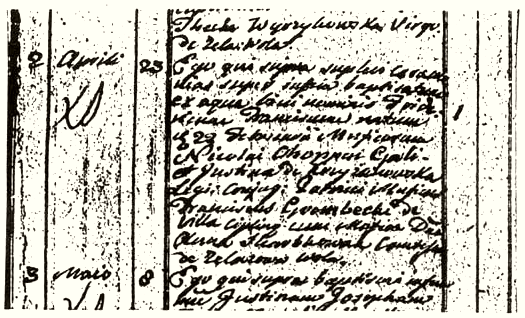 Thecla Wyorzykowska Virgo
de Zelaz Wola
2 Aprili 23 Ego qui supra suplevi Ceremo
nias super infan baptisatum
ex aqua bini nominis Fride
ricum Franciscum natum
d 22 Februarii Magnificorum
Nicolai Choppen Galli
et Justina de Krzyzanowska
Legi: Conjug: Patrini Magnifi
Franciscus Grembecki de
villa Ciepliny cum Magnifica Do
Anna Skarbkowna Comitissa
de Zelazowa Wola.
3 Maio 8 Ego qui supra baptisavi infan
Justinam Josepham
1